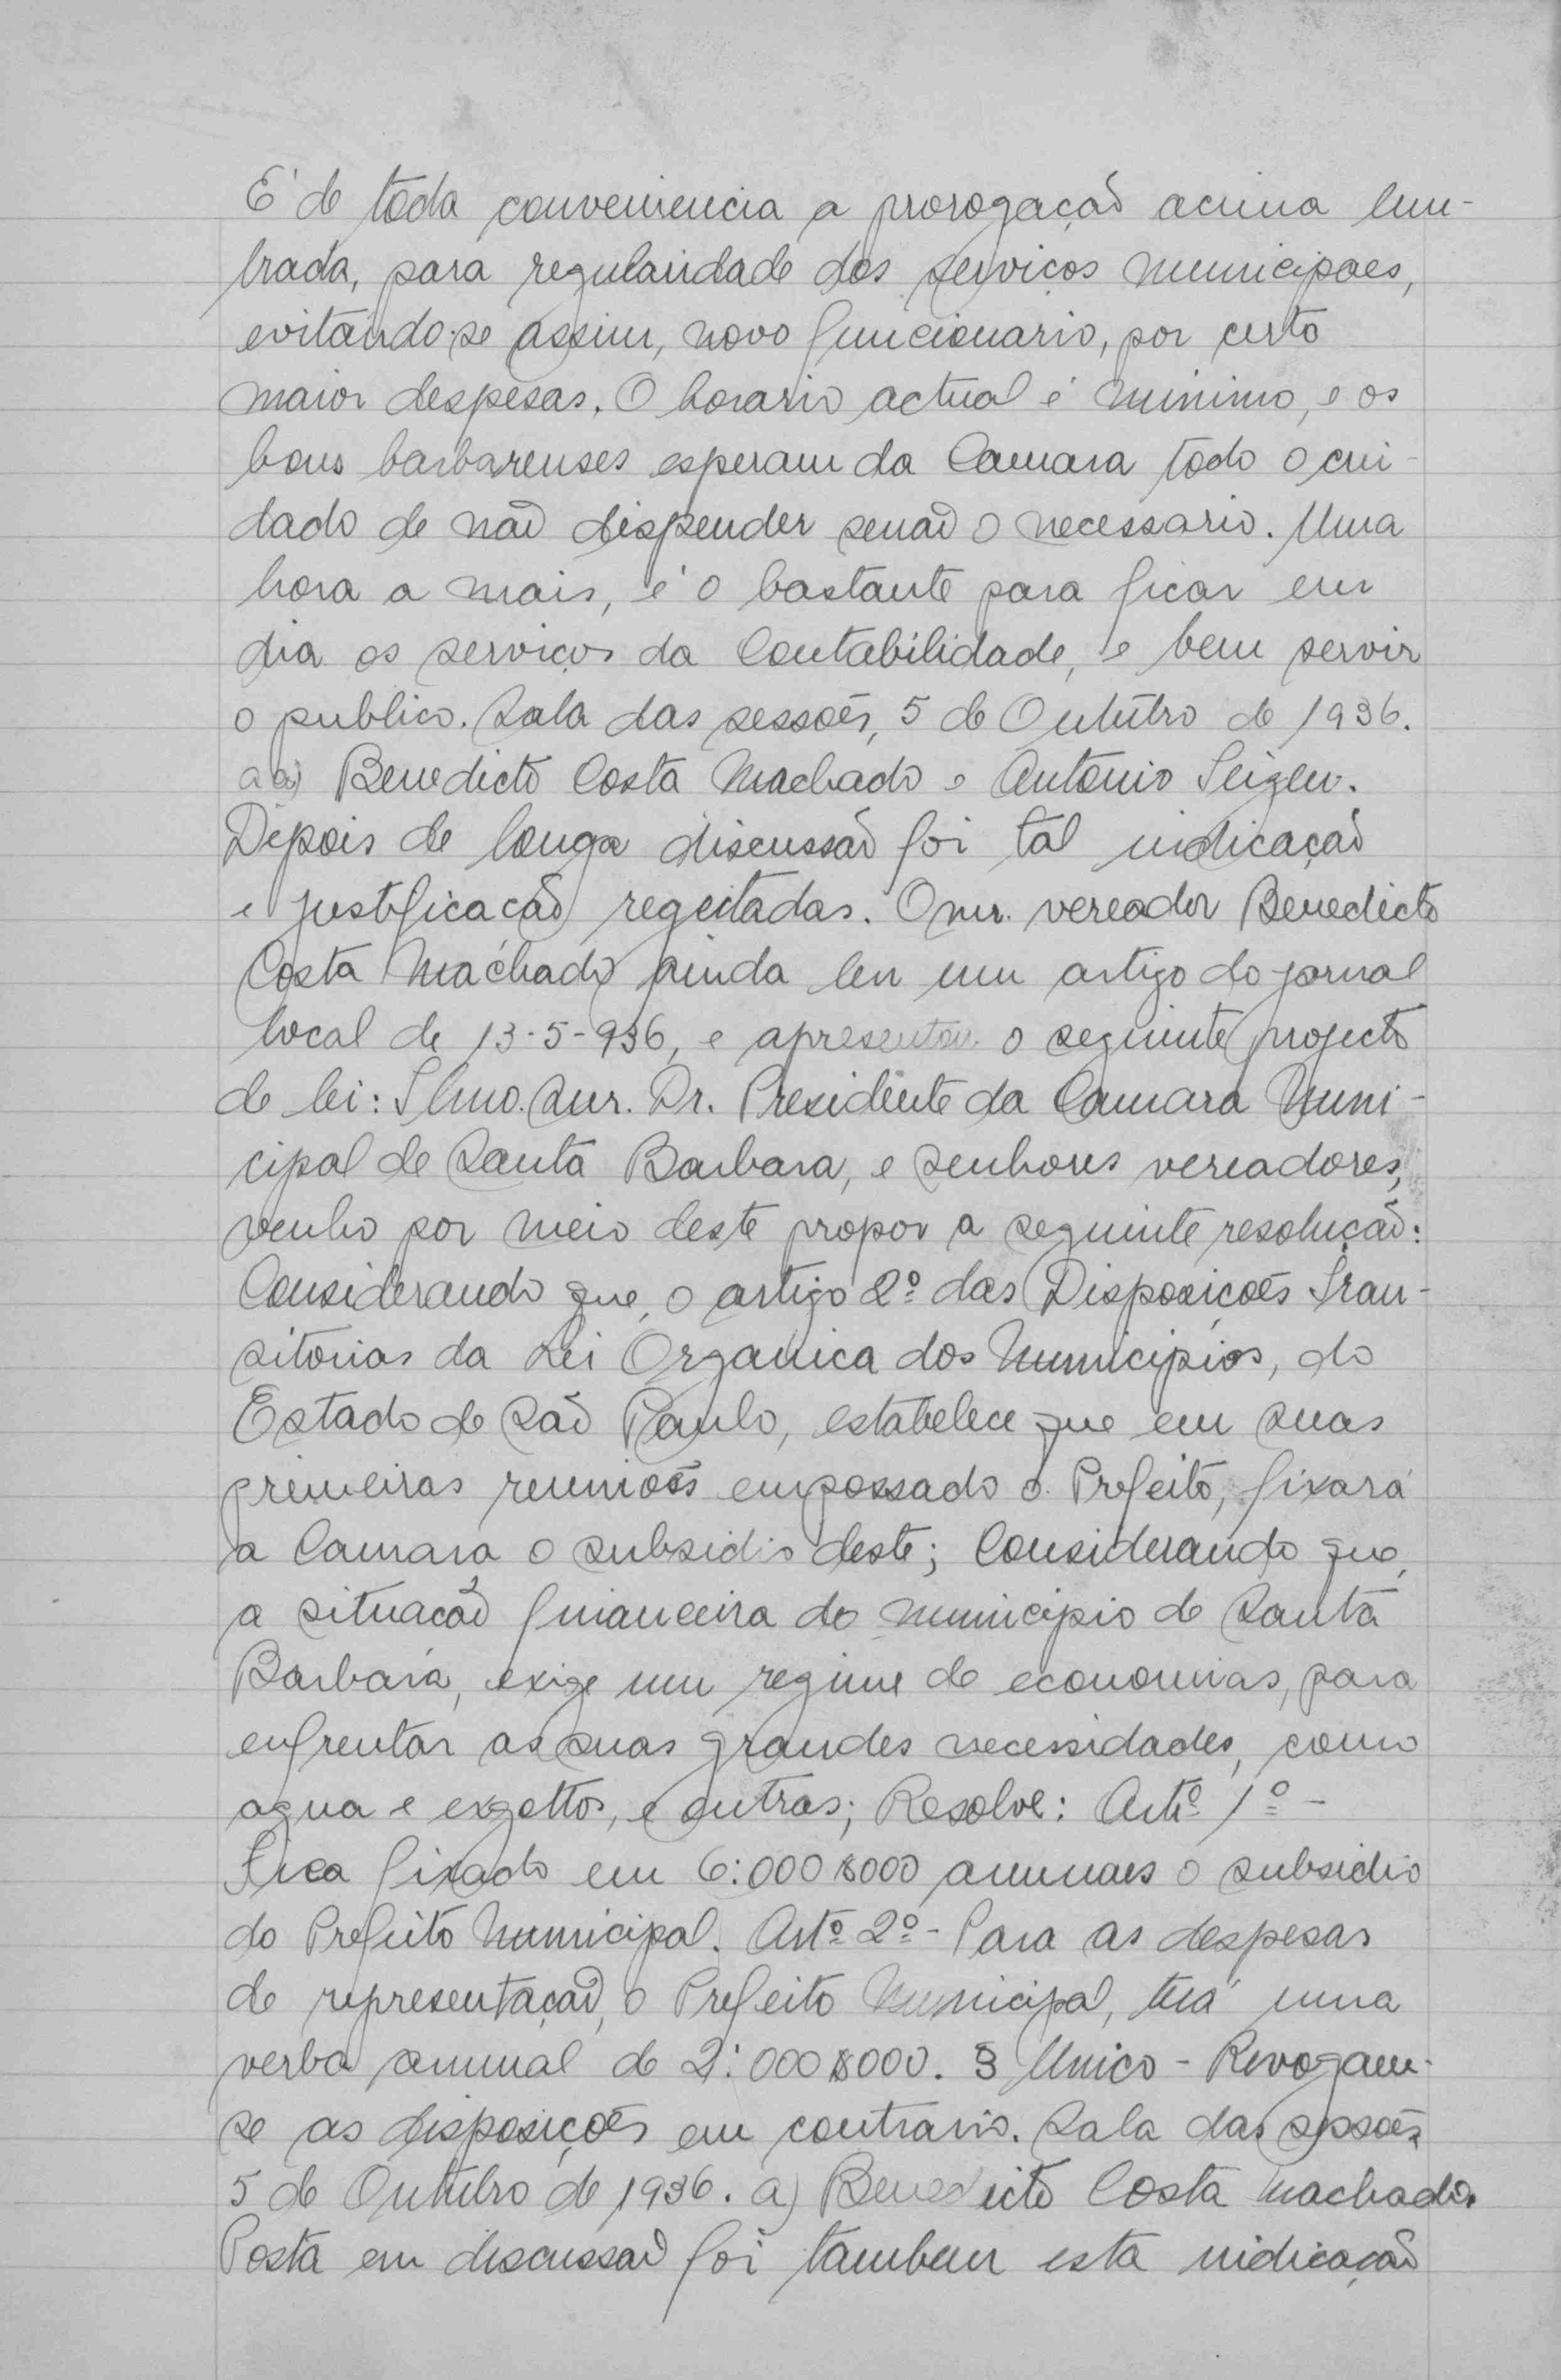 E' de toda conveniencia a prorogação acima lem-
brada, para regularidade dos serviços municipaes,
evitando-se assim, novo funcionario, por certo
maior despesas. O horario actual é minimo, e os
bons barbarenses esperam da Camara todo o cui-
dado de não dispender senão o necessario. Uma
hora a mais, é o bastante para ficar em
dia os serviços da Contabilidade, e bem servir
o publico. Sala das sessões, 5 de Outubro de 1936.
aa) Benedicto Costa Machado e Antonio
Depois de longa discussão foi tal indicação
e justificação regeitadas. O snr. vereador Benedicto
Costa Machado ainda leu um artigo do jornal
local de 13-5-936, e apresentou o seguinte projecto
de lei: Ilmo. Snr. Dr. Presidente da Camara Muni-
cipal de Santa Barbara, e senhores vereadores,
venho por meio deste propor a seguinte resolução:
Considerando que, o artigo 2º das Disposições Tran-
sitorias da Lei Organica dos Municipios, do
Estado de São Paulo, estabelece que em suas
primeiras reuniões empossado o Prefeito, fixará
a Camara o subsidio deste; Considerando que,
a situação financeira do municipio de Santa
Barbara, exige um regime de economias, para
enfrentar as suas grandes necessidades, como
agua e exgottos, e outras; Resolve: Artº 1º -
Fica fixado em 6:000$000 annuaes o subsidio
do Prefeito Municipal. Artº 2º - Para as despesas
de representação, o Prefeito Municipal, terá uma
verba annual de 2:000$000. § Unico - Revogam-
se as disposições em contrario. Sala das sessões
5 de Outubro de 1936. a) Benedicto Costa Machado.
Posta em discussão foi tambem esta indicação